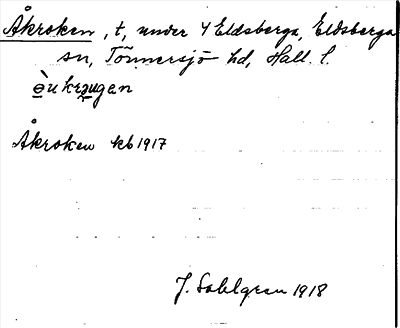 Åkroken, t, under 4 Eldsberga, Eldsberga
sn, Tönnersjö hd, Hall. l.
Åkroken kb 1917
J. Sahlgren 1918